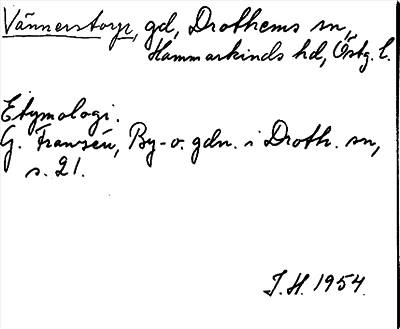 Vännerstorp, gd, Drothems sn,
Hammarkinds hd, Östg. l.
Etymologi.
G. Franzén, By- o. gdn. i Droth. sn,
s. 21.
J. H. 1954.